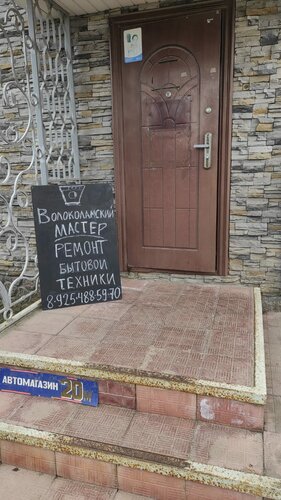 Волоколамский
МАСТЕР
РЕМОНТ
БЫТОВОЙ
ТЕХНИКИ
8-925-488-59-70
АВТОМАГАЗИН 20м